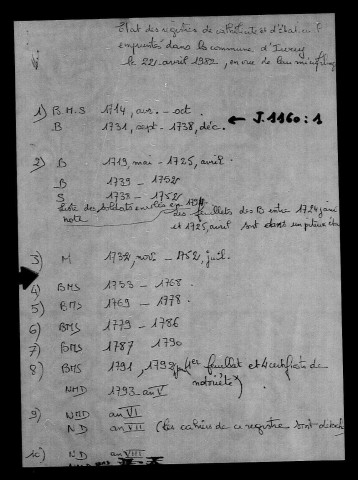 Etat des registres de catholicité et d'état civil
empruntés dans la commune d'
le 22 avril 1982, en vue de leur
1) B M.S 1714, avr. - oct.
B 1731, sept - 1738, déc. ← J.1160:1
2) B 1719, mai - 1725, avril.
B 1739 - 1752
S 1738 - 1752
Liste des soldats enrôlés en
note des feuillets des B entre 1724
et 1725, avril sont dans un piteux état
3) M 1732, nov. - 1752, juil.
4) BMS 1753 - 1768.
5) BMS 1769 - 1778.
6) BMS 1779 - 1786
7) BMS 1787 1790
8) BMS 1791, 1792 (1er feuillet et 4 certificats de
notoriété)
NMD 1793 - an V
9) NMD an VI
ND an VII (les cahiers de ce registre sont
10) ND an VIII